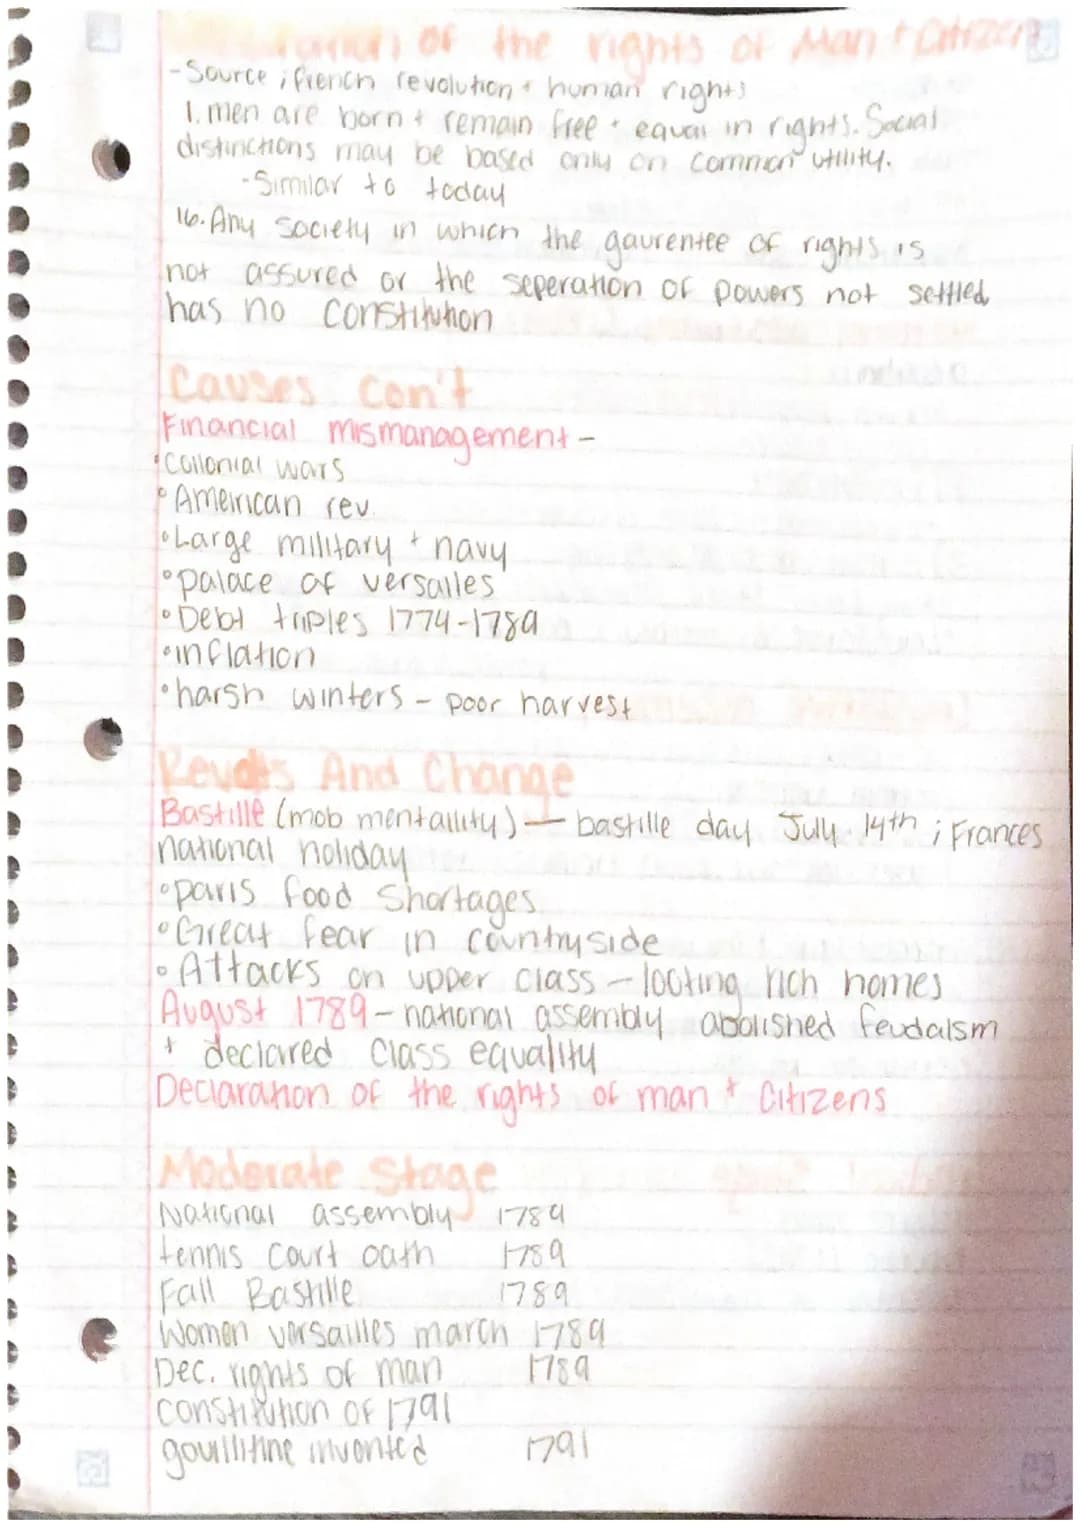 of the rights of Man + Citizen
- Source ; french revolution + human rights
1. men are born + remain free + equal in rights. Social
distinctions may be based only on common utility.
- Similar to today
16. Any society in which the gaurentee of rights is
not assured or the seperation of powers not settled,
has no constitution
Causes con't
Financial mismanagement -
• Collonial wars
• Ameirican rev.
• Large military + navy
• palace of versailles
• Debt triples 1774-1789
• inflation
• harsh winters - poor harvest
Revolts And Change
Bastille (mob mentallity) — bastille day July 14th ; Frances
national holiday
• paris food shortages
• Great fear in countryside
• Attacks on upper class - looting rich homes
August 1789 - national assembly abolished feudalsm
+ declared class equality
Declaration of the rights of man + Citizens
Moderate Stage
National assembly 1789
tennis court oath 1789
Fall Bastille 1789
Women versailles march 1789
Dec. rights of man 1789
constitution of 1791
gouillitine invented 1791